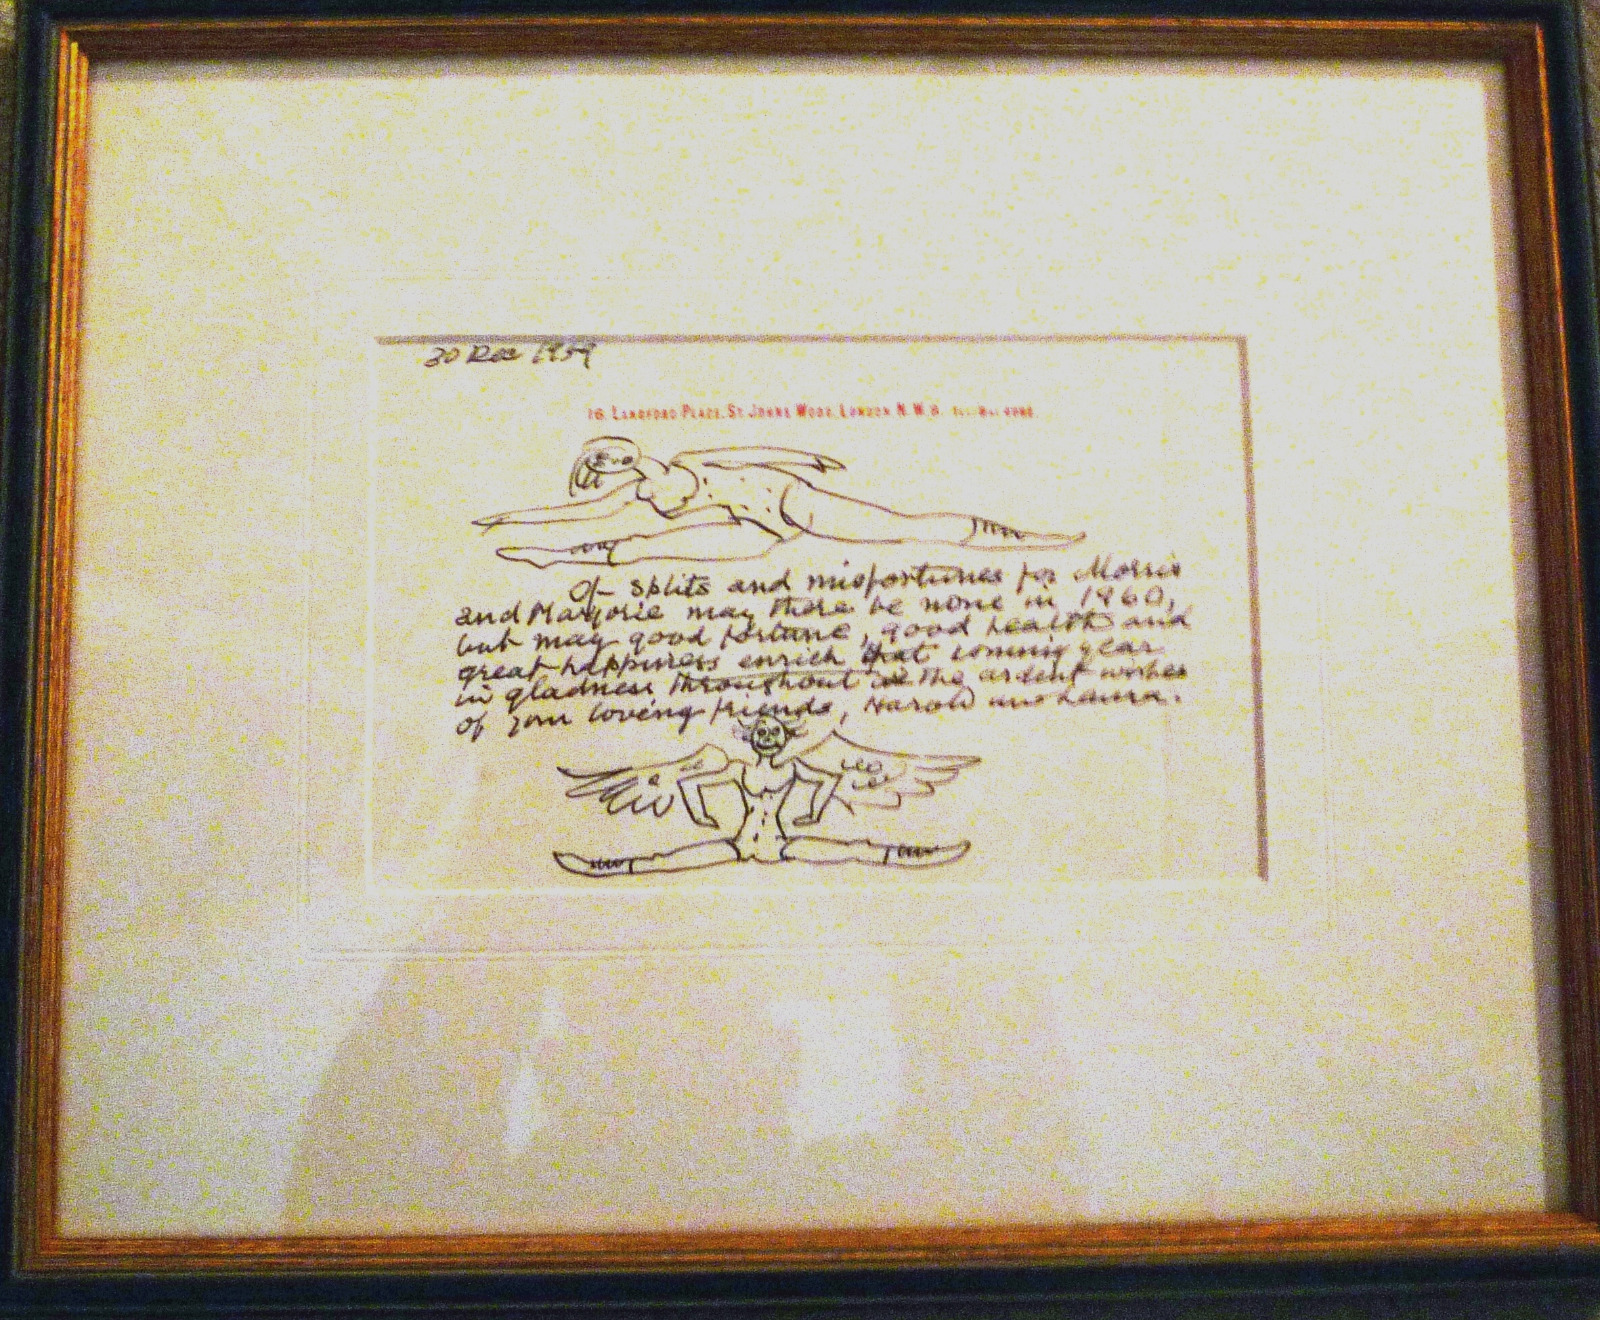 30 Dec 1959
16, Langford Place, St Johns Wood, London N.W.8.
Of splits and misfortunes for Morris
and Marjorie may there be none in 1960,
but may good fortune, good health and
great happiness enrich that coming year
in gladness throughout the ardent wishes
of your loving friends, Harold and Laura.